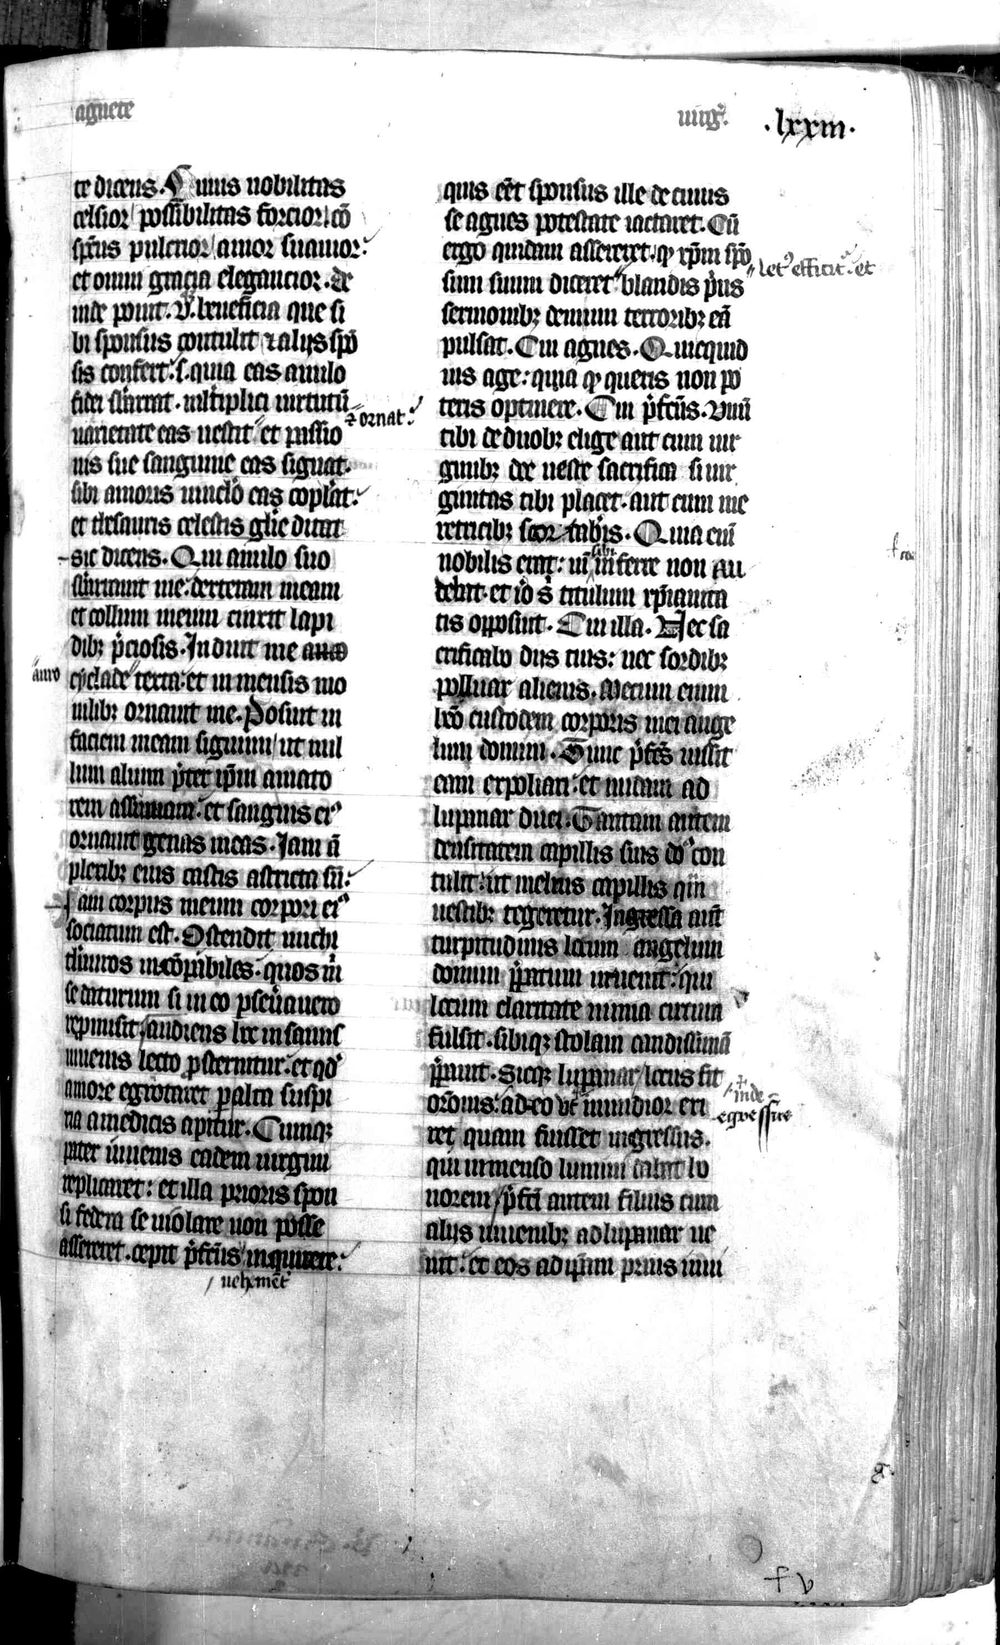 agnete
uirgͣ.
.lxxiii.
te dicens. Cuius nobilitas
celsior possibilitas forcior cō
spc̄us pulcrior amor suauior:
et omni gracia elegancior. de
inde ponit .v. beneficia que si
bi sponsus contulit ⁊ alijs spō
sis confert. s. quia eas anulo
fidei s̄barrat. multiplici uirtutū
⁊ ornat:
uarietate eas uestit et passio
nis sue sanguine eas signat.
sibi amoris uinclo eas copulat:
et thesauris celestis glīe ditat
sic dicens. Qui anulo suo
s̄barrauit me: dexteram meam
et collum meum cinxit lapi
dibꝫ p̄ciosis. Induit me auro
auro
cyclade texta: et inmensis mo
nilibꝫ ornauit me. Posuit in
faciem meam signum ut nul
lum alium p̄ter ip̄m amato
rem assumam: et sanguis eiꝰ
ornauit genas meas. Jam ā
plexibꝫ eius castis astricta sū:
Jam corpus meum corpori eiꝰ
sociatum est. Ostendit michi
thesauros incōpabiles. quos m̄
se daturum si in eo pseuauero
repmisit audiens hec insanus
iuuenis lecto prosternitur. et qd̓
amore egrotaret p alta suspi
ria a medicis apitur. Cumqꝫ
pater iuuenis eadem uirgini
replicaret: et illa prioris spon
si federa se uiolare non posse
assereret. cepit p̄fectus inquirere:
uehemēt
quis eēt sponsus ille de cuius
se agnes potestate iactaret. Cū
ergo quidam assereret. ꝙ xp̄m spō
let̓ efficit̓. et
sum suum diceret blandis p̓us
sermonibꝫ demum terroribꝫ eā
pulsat. Cui agnes. Quicquid
uis age: quia ꝙ queris non po
teris optinere. Cui p̄fectus. Vnū
tibi de duobꝫ elige aut cum uir
ginibꝫ dee ueste sacrifica si uir
ginitas tibi placet. aut cum me
retricibꝫ scortab̓is. Quia enī
nobilis erat: uī inferre non au
sibi
debat. et iō s̄ titulum xp̄ianita
tis opposuit. Cui illa. Nec sa
crificabo diis tuis: nec sordibꝫ
polluar alienis. Mecum enim
heō custodem corporis mei ange
lum domini. Tunc p̄fectus iussit
eam expoliari: et nudam ad
lupanar duci. Tantam autem
densitatem capillis suis dn̄s con
tulit: ut melius capillis qm̄
uestibꝫ tegeretur. Ingressa aūt
turpitudinis locum angelum
domini p̄paratum inuenit: qui
locum claritate nimia circum
fulsit. sibiqꝫ stolam candissimā
p̄parauit. Sicqꝫ lupanar locus fit
inde
oronis: adeo vt̄ mundior exi
egressus
ret quam fuisset ingressus.
qui inmenso lumini dabat ho
norem p̄fecti autem filius cum
alijs iuuenibꝫ ad lupanar ue
nit: et eos ad ip̄am prius inui
f v